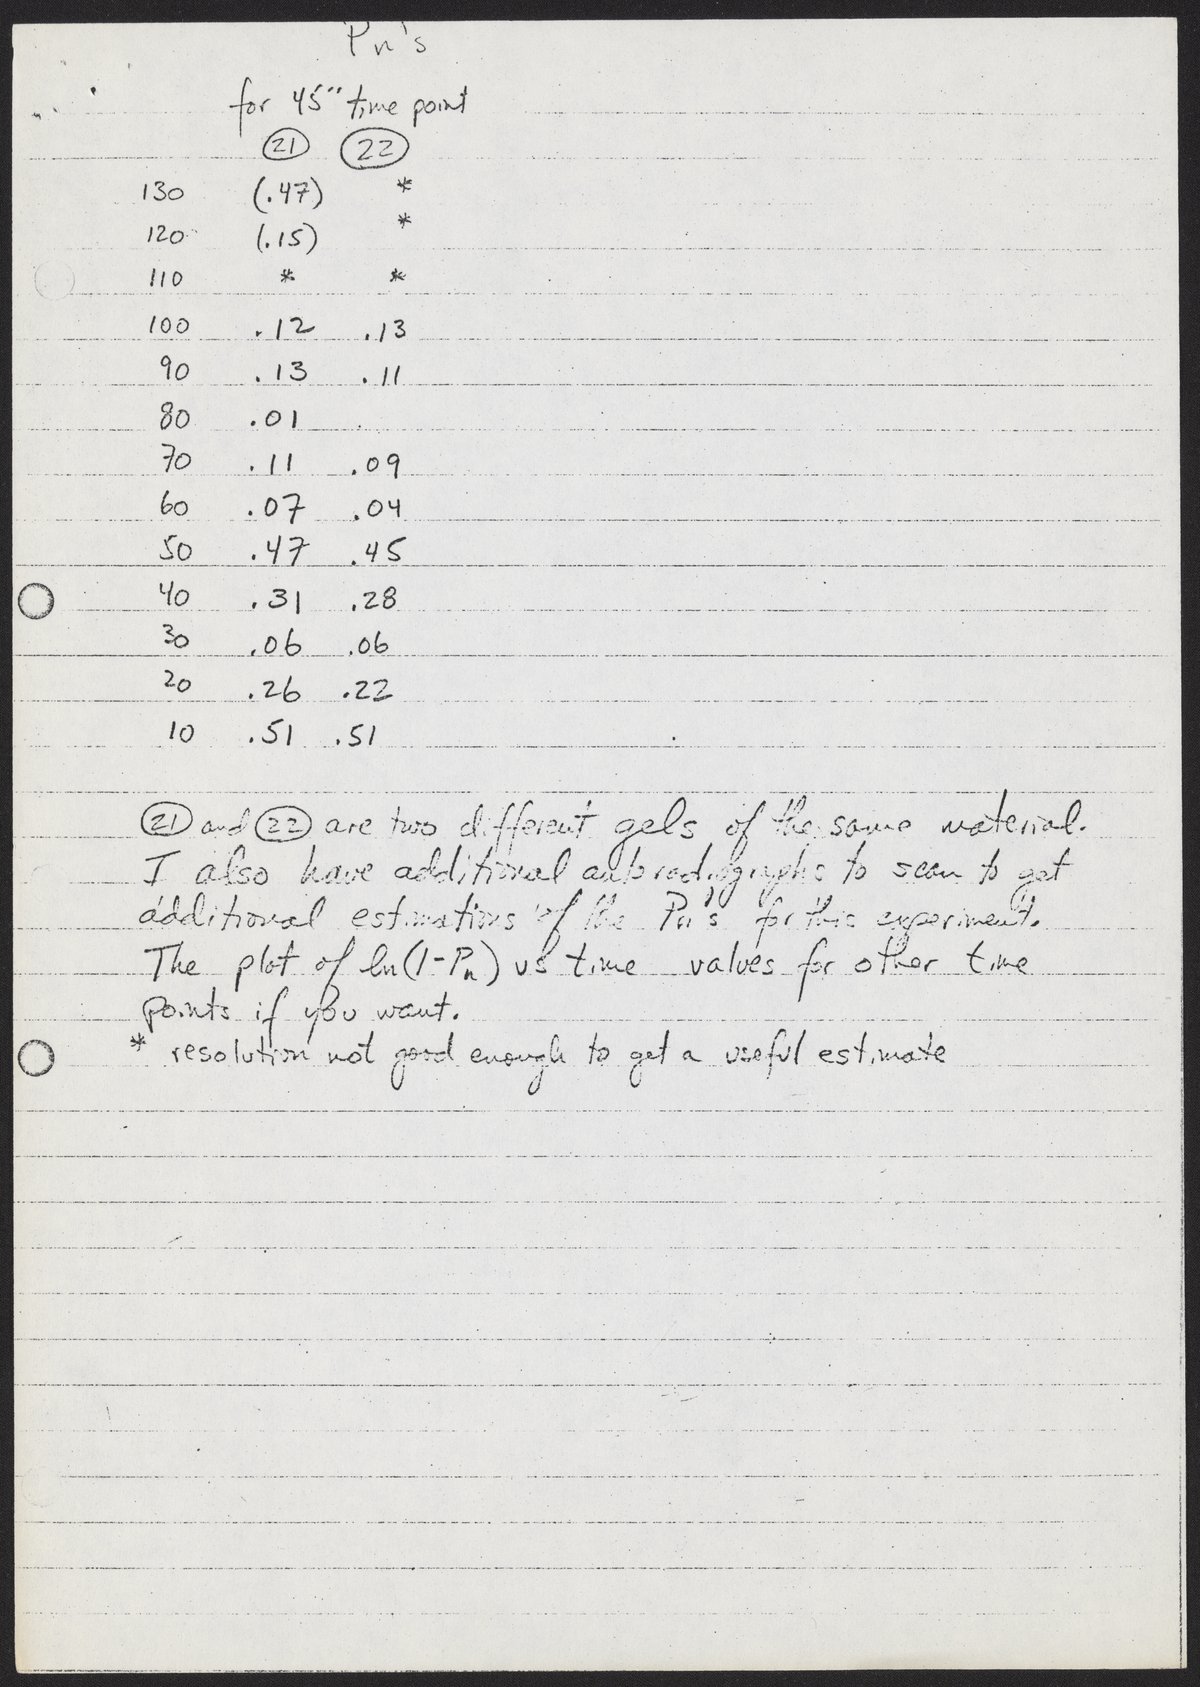 Pn's
for 45" time point
21 22
130 (.47) *
120 (.15) *
110 * *
100 .12 .13
90 .13 .11
80 .01
70 .11 .09
60 .07 .04
50 .47 .45
40 .31 .28
30 .06 .06
20 .26 .22
10 .51 .51
21 and 22 are two different gels of the same material.
I also have additional autoradiographs to scan to get
additional estimations of the Pn's for this experiment.
The plot of ln(1-Pn) vs time values for other time
points if you want.
* resolution not good enough to get a useful estimate